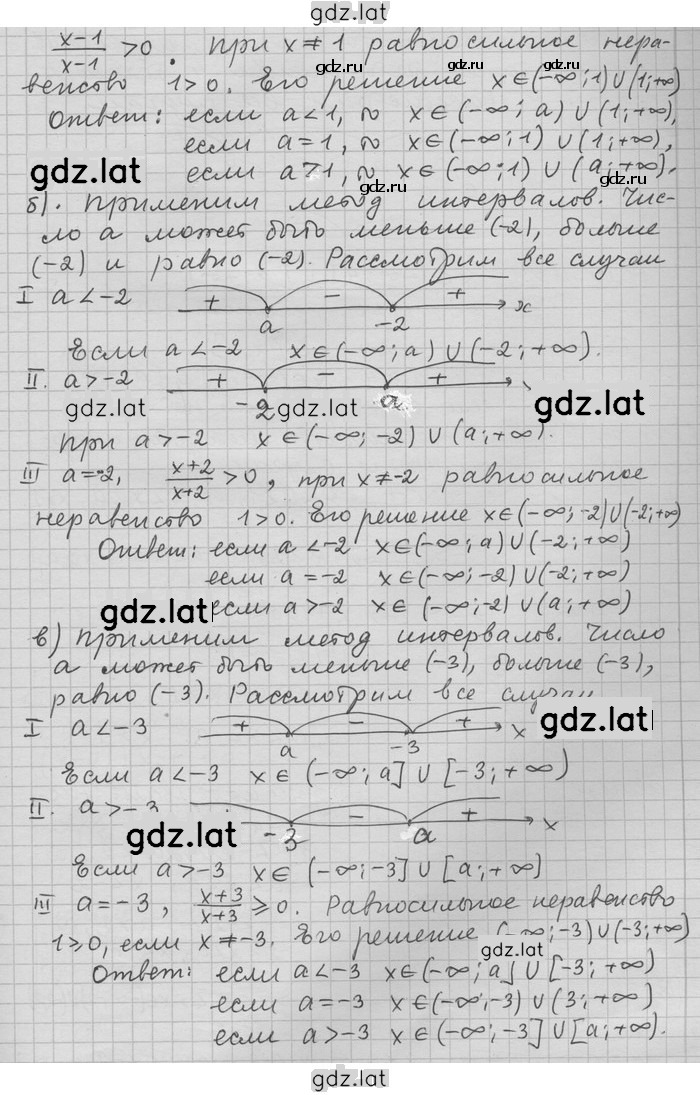 gdz.lat
x-1/x-1 >0. при x≠1 равносильное нера-
gdz.ru gdz.ru
венство 1>0. Его решение x∈(-∞;1)∪(1;+∞)
Ответ: если a<1, то x∈(-∞; a)∪(1;+∞),
если a=1, то x∈(-∞;1)∪(1;+∞),
gdz.lat
если a>1, то x∈(-∞;1)∪(a;+∞).
gdz.ru
б). Применим метод интервалов. Чис-
ло a может быть меньше (-2), больше
(-2) и равно (-2). Рассмотрим все случаи
I a<-2 + − + x
a -2
Если a<-2 x∈(-∞; a)∪(-2; +∞).
II. a>-2 + − +
gdz.lat -2 gdz.lat a gdz.lat
при a>-2 x∈(-∞; -2)∪(a;+∞).
III a=-2, x+2/x+2 >0, при x≠-2 равносильное
неравенство 1>0. Его решение x∈(-∞;-2)∪(-2;+∞)
Ответ: если a<-2 x∈(-∞;a)∪(-2;+∞)
если a=-2 x∈(-∞;-2)∪(-2;+∞)
gdz.lat если a>-2 x∈(-∞;-2)∪(a;+∞)
в) Применим метод интервалов. Число
a может быть меньше (-3), больше (-3),
равно (-3). Рассмотрим все случаи
I a<-3 + − + x gdz.lat
a -3
Если a<-3 x∈(-∞; a]∪[-3;+∞)
II. a>-3 − + x
gdz.lat -3 a
Если a>-3 x∈(-∞;-3]∪[a;+∞]
III a=-3, x+3/x+3 ≥0. Равносильное неравенство
1≥0, если x≠-3. Его решение (-∞;-3)∪(-3;+∞)
gdz.lat
Ответ: если a<-3 x∈(-∞; a]∪[-3;+∞)
если a=-3 x∈(-∞;-3)∪(3;+∞)
если a>-3 x∈(-∞;-3]∪[a;+∞).
gdz.lat